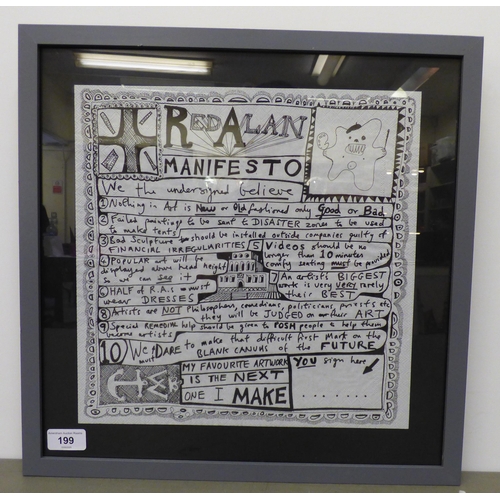 RED ALAN
MANIFESTO
We the undersigned believe
1 Nothing in Art is New or Old fashioned only Good or Bad
2 Failed paintings to be sent to DISASTER zones to be used
to make tents
3 Bad Sculpture should be installed outside companies guilty of
FINANCIAL IRREGULARITIES
4 POPULAR art will be
displayed above head height
so we can see it
5 Videos should be no
longer than 10 minutes
comfy seating must be provided
6 HALF OF R.A.s must
wear DRESSES
7 An artist's BIGGEST
work is very very rarely
their BEST
8 Artists are NOT Philosophers, comedians, politicians, priests etc
they will be JUDGED on their ART
9 Special REMEDIAL help should be given to POSH people to help them
become artists
10 We must DARE to make that difficult first Mark on the
BLANK CANVAS of the FUTURE
MY FAVOURITE ARTWORK
IS THE NEXT
ONE I MAKE
YOU sign here
199